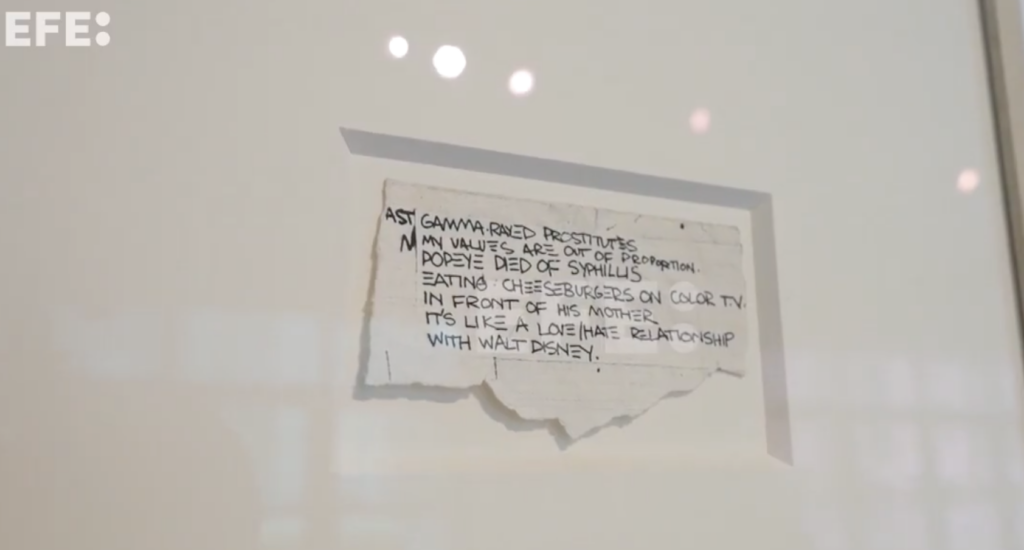 EFE:
AST GAMMA-RAYED PROSTITUTES
N MY VALUES ARE OUT OF PROPORTION.
POPEYE DIED OF SYPHILLIS
EATING CHEESEBURGERS ON COLOR T.V.
IN FRONT OF HIS MOTHER
IT'S LIKE A LOVE/HATE RELATIONSHIP
WITH WALT DISNEY.